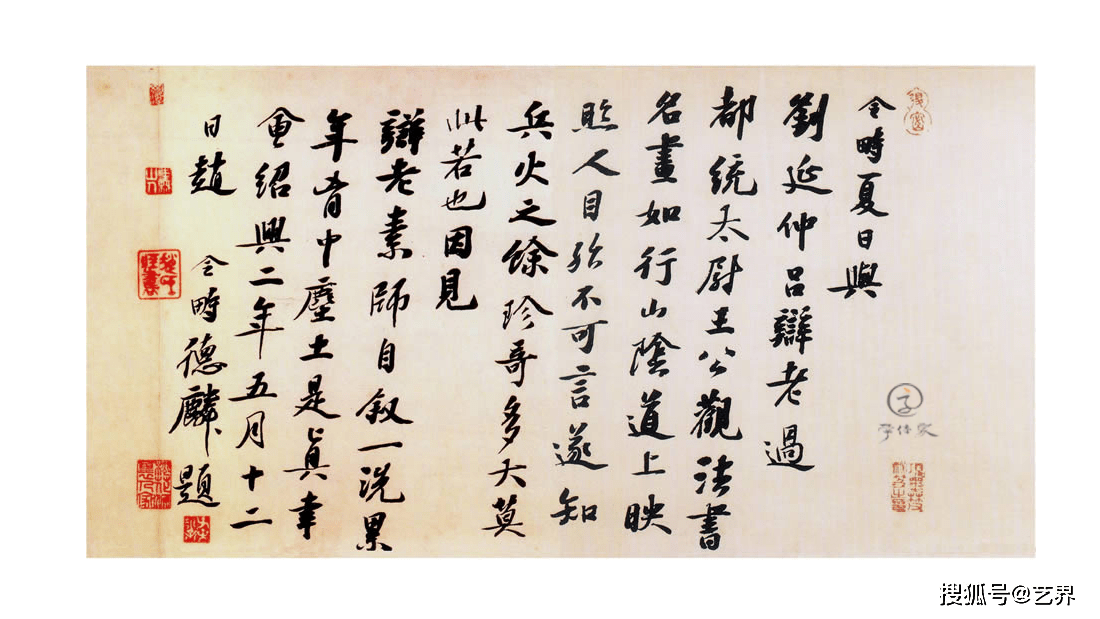 令畤夏日與
劉延仲呂辯老過
都統太尉王公觀法書
名畫如行山陰道上映
照人目殆不可言遂知
兵火之餘珍哥多大莫
此若也因見
辯老素師自叙一洗累
年胷中塵土是真幸
會紹興二年五月十二
日趙 令畤德麟題
搜狐号@艺界